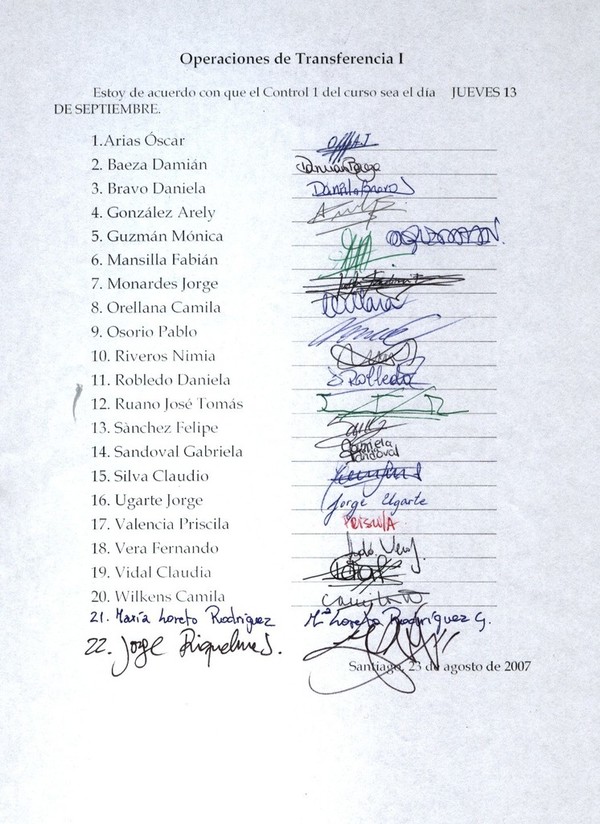 Operaciones de Transferencia I
Estoy de acuerdo con que el Control 1 del curso sea el día JUEVES 13
DE SEPTIEMBRE.
1.Arias Óscar
2. Baeza Damián Damián Baeza
3. Bravo Daniela Daniela Bravo
4. González Arely
5. Guzmán Mónica
6. Mansilla Fabián
7. Monardes Jorge
8. Orellana Camila
9. Osorio Pablo
10. Riveros Nimia
11. Robledo Daniela D Robledo
12. Ruano José Tomás J T R
13. Sànchez Felipe
14. Sandoval Gabriela Gabriela Sandoval
15. Silva Claudio
16. Ugarte Jorge Jorge Ugarte
17. Valencia Priscila
18. Vera Fernando
19. Vidal Claudia
20. Wilkens Camila
21. María Loreto Rodríguez Mª Loreto Rodríguez G.
22. Jorge Riquelme S.
Santiago, 23 de agosto de 2007